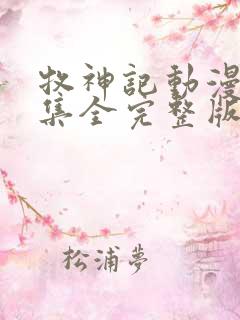 牧神記動漫
集全完整版
松浦夢